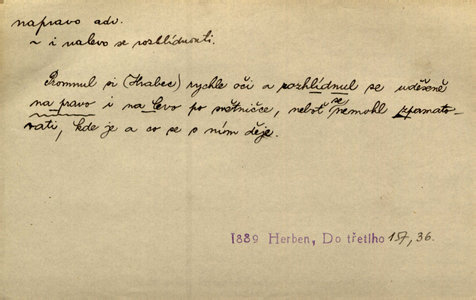 napravo adv.
~ i nalevo se rozhlédnouti.
Promnul si (Hrabec) rychle oči a rozhlídnul se uděšeně
na pravo i na levo po světničce, neboť se nemohl zpamato-
vati, kde je a co se s ním děje.
1889 Herben, Do třetího 157, 36.